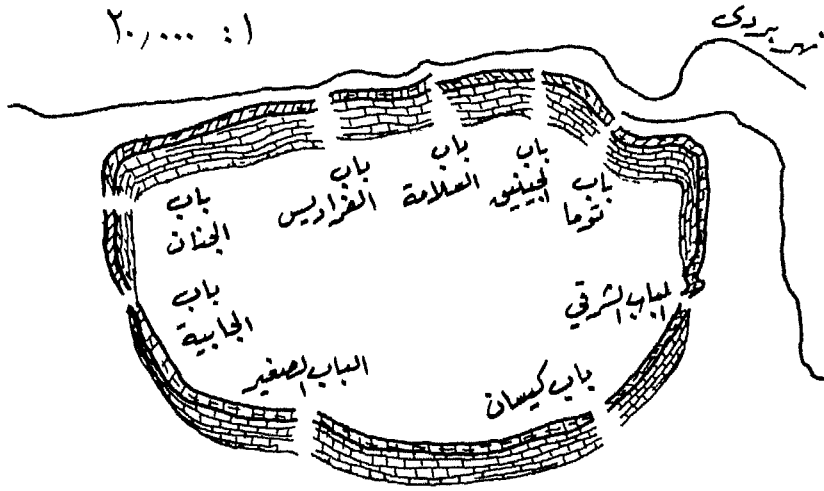 ١ : ٢٠,٠٠٠
نهر بردى
باب
الجنينيق
باب
توما
باب
السلامة
باب
الفراديس
باب
الجنان
باب
الجابية
الباب الشرقي
الباب الصغير
باب كيسان